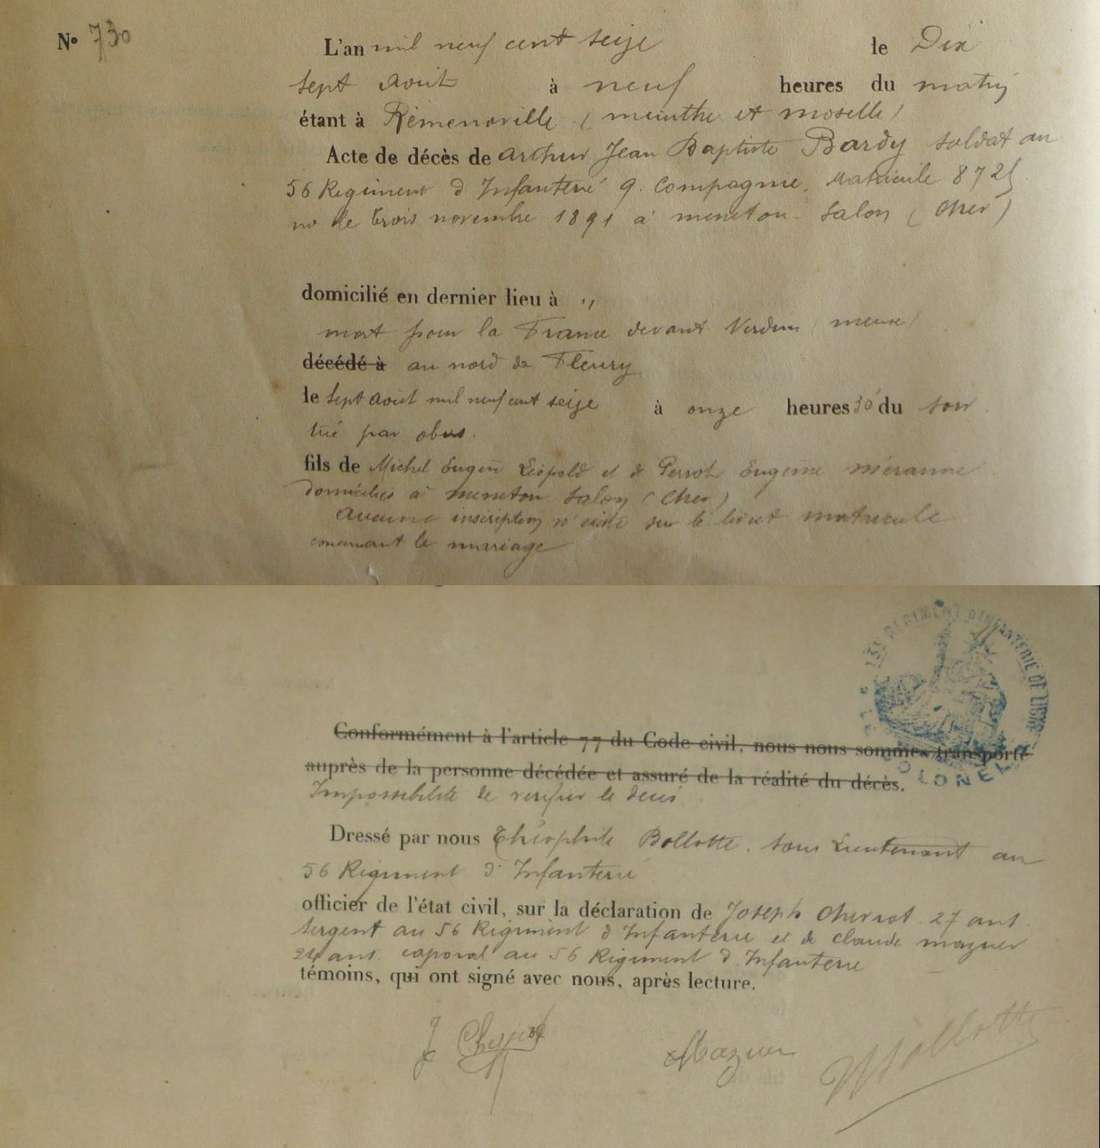 N° 730
L'an mil neuf cent seize le Dix
sept Août à neuf heures du matin
étant à Rémenoville (meurthe et moselle)
Acte de décès de Arthur Jean Baptiste Bardy soldat au
56 Regiment d'Infanterie 9. Compagnie, Matricule 8725
né le trois novembre 1891 à meneton-Salon (Cher)
domicilié en dernier lieu à "
mort pour la France devant Verdun (meuse)
décédé à au nord de Fleury
le sept août mil neuf cent seize à onze heures 30 du soir
tué par obus.
fils de Michel Eugène Léopold et de Perrot Eugénie
domiciliés à meneton Salon (Cher)
Aucune inscription n'existe sur le livret matricule
concernant le mariage
REGIMENT D'INFANTERIE DE LIGNE
COLONEL
Conformément à l'article 77 du Code civil, nous nous sommes transporté
auprès de la personne décédée et assuré de la réalité du décès.
Impossibilité de vérifier le décès.
Dressé par nous Théophile Bollotte. sous Lieutenant au
56 Regiment d'Infanterie
officier de l'état civil, sur la déclaration de Joseph 27 ans.
Sergent au 56 Regiment d'Infanterie et de Claude mazuer
24 ans. caporal au 56 Regiment d'Infanterie
témoins, qui ont signé avec nous, après lecture.
J Mazuer Bollotte